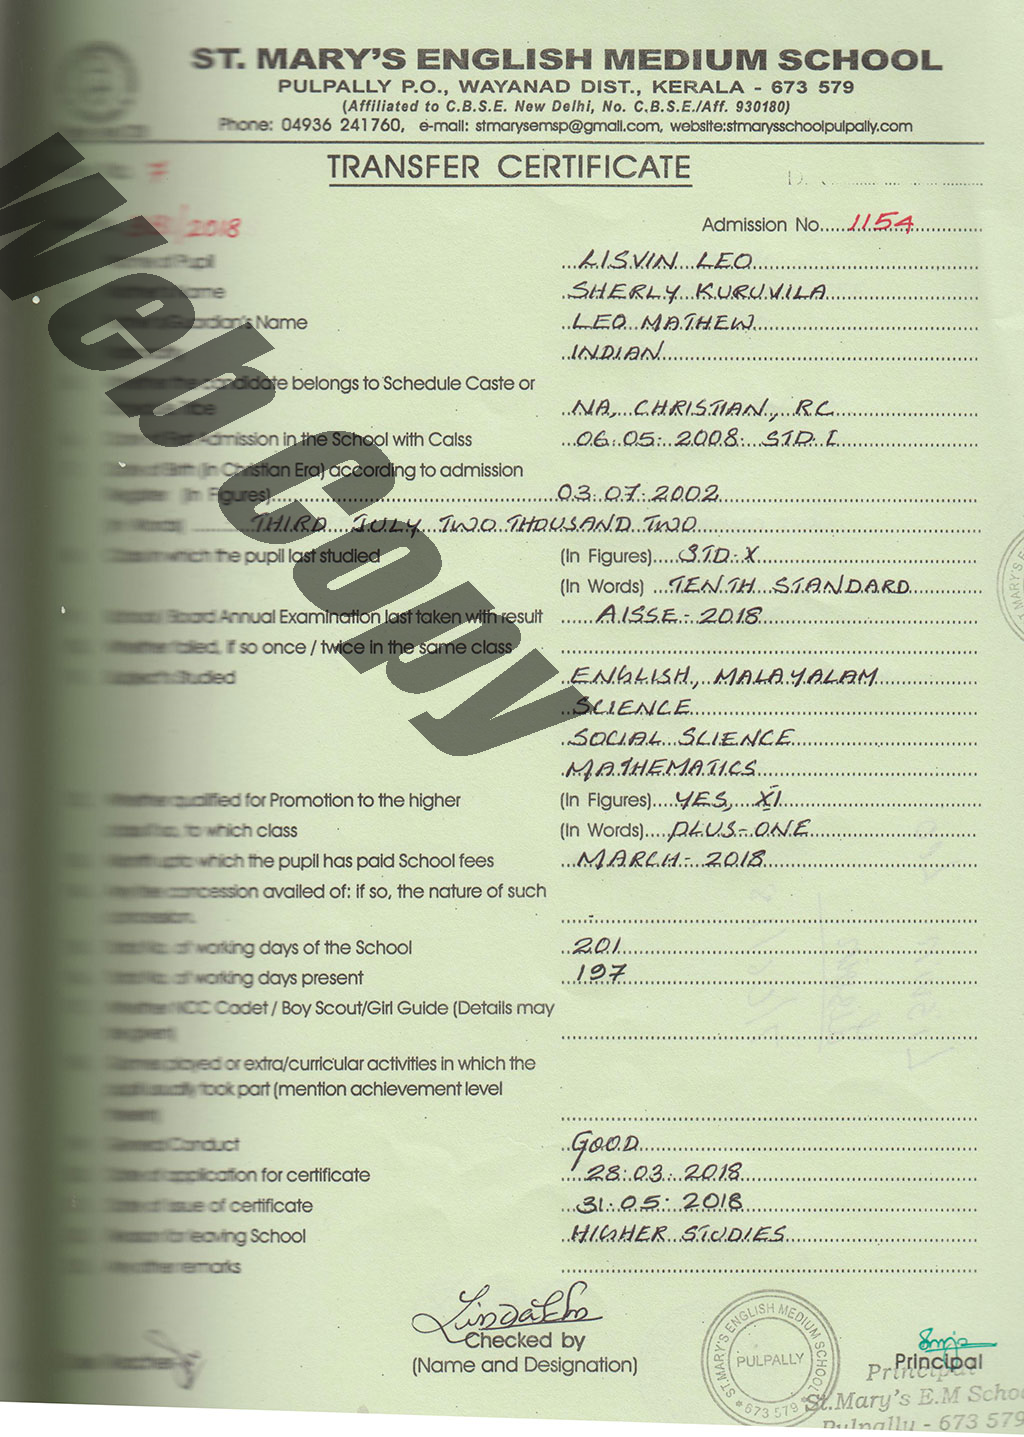 ST. MARY'S ENGLISH MEDIUM SCHOOL
PULPALLY P.O., WAYANAD DIST., KERALA - 673 579
(Affiliated to C.B.S.E. New Delhi, No. C.B.S.E./Aff. 930180)
Phone: 04936 241760, e-mail: stmarysemsp@gmail.com, website:stmarysschoolpulpally.com
TRANSFER CERTIFICATE
7
/2018 Admission No. 1154
Pupil LISVIN LEO
Name SHERLY KURUVILA
Guardian's Name LEO MATHEW
INDIAN
the candidate belongs to Schedule Caste or
Tibe NA, CHRISTIAN, RC
Admission in the School with Calss 06.05.2008. STD I
Birth (in Christian Era) according to admission
(In Figures) 03.07.2002
(In Words) THIRD JULY TWO THOUSAND TWO
in which the pupil last studied (In Figures) STD-X
(In Words) TENTH STANDARD
Board Annual Examination last taken with result AISSE-2018
Whether failed, if so once / twice in the same class
Studied ENGLISH, MALAYALAM
SCIENCE
SOCIAL SCIENCE
MATHEMATICS
Whether qualified for Promotion to the higher (In Figures) YES, XI
to which class (In Words) PLUS-ONE
which the pupil has paid School fees MARCH-2018
concession availed of: if so, the nature of such
concession.
of working days of the School 201
of working days present 197
Whether NCC Cadet / Boy Scout/Girl Guide (Details may
Games played or extra/curricular activities in which the
usually took part (mention achievement level
General Conduct GOOD
application for certificate 28.03.2018
Date of issue of certificate 31.05.2018
Reason for leaving School HIGHER STUDIES
remarks
Checked by
(Name and Designation)
Principal
Principal
St.Mary's E.M Schoo
Pulpally - 673 579
ST.MARY'S ENGLISH MEDIUM SCHOOL
PULPALLY
673 579
Web Copy